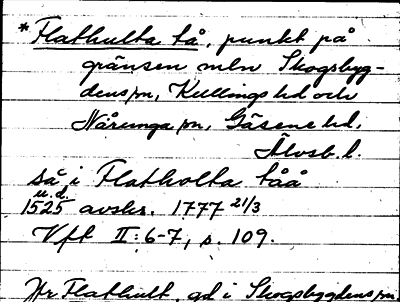 *Flathulta tå, punkt på
gränsen mln Skogsbyg-
dens sn, Kullings hd och
Nårunga sn, Gäsene hd,
Älvsb. l.
så i Flatholta tåå
u.d.
1525 avskr. 1777 21/3
Vft II:6-7, s. 109.
Jfr Flathult, gd i Skogsbygdens sn